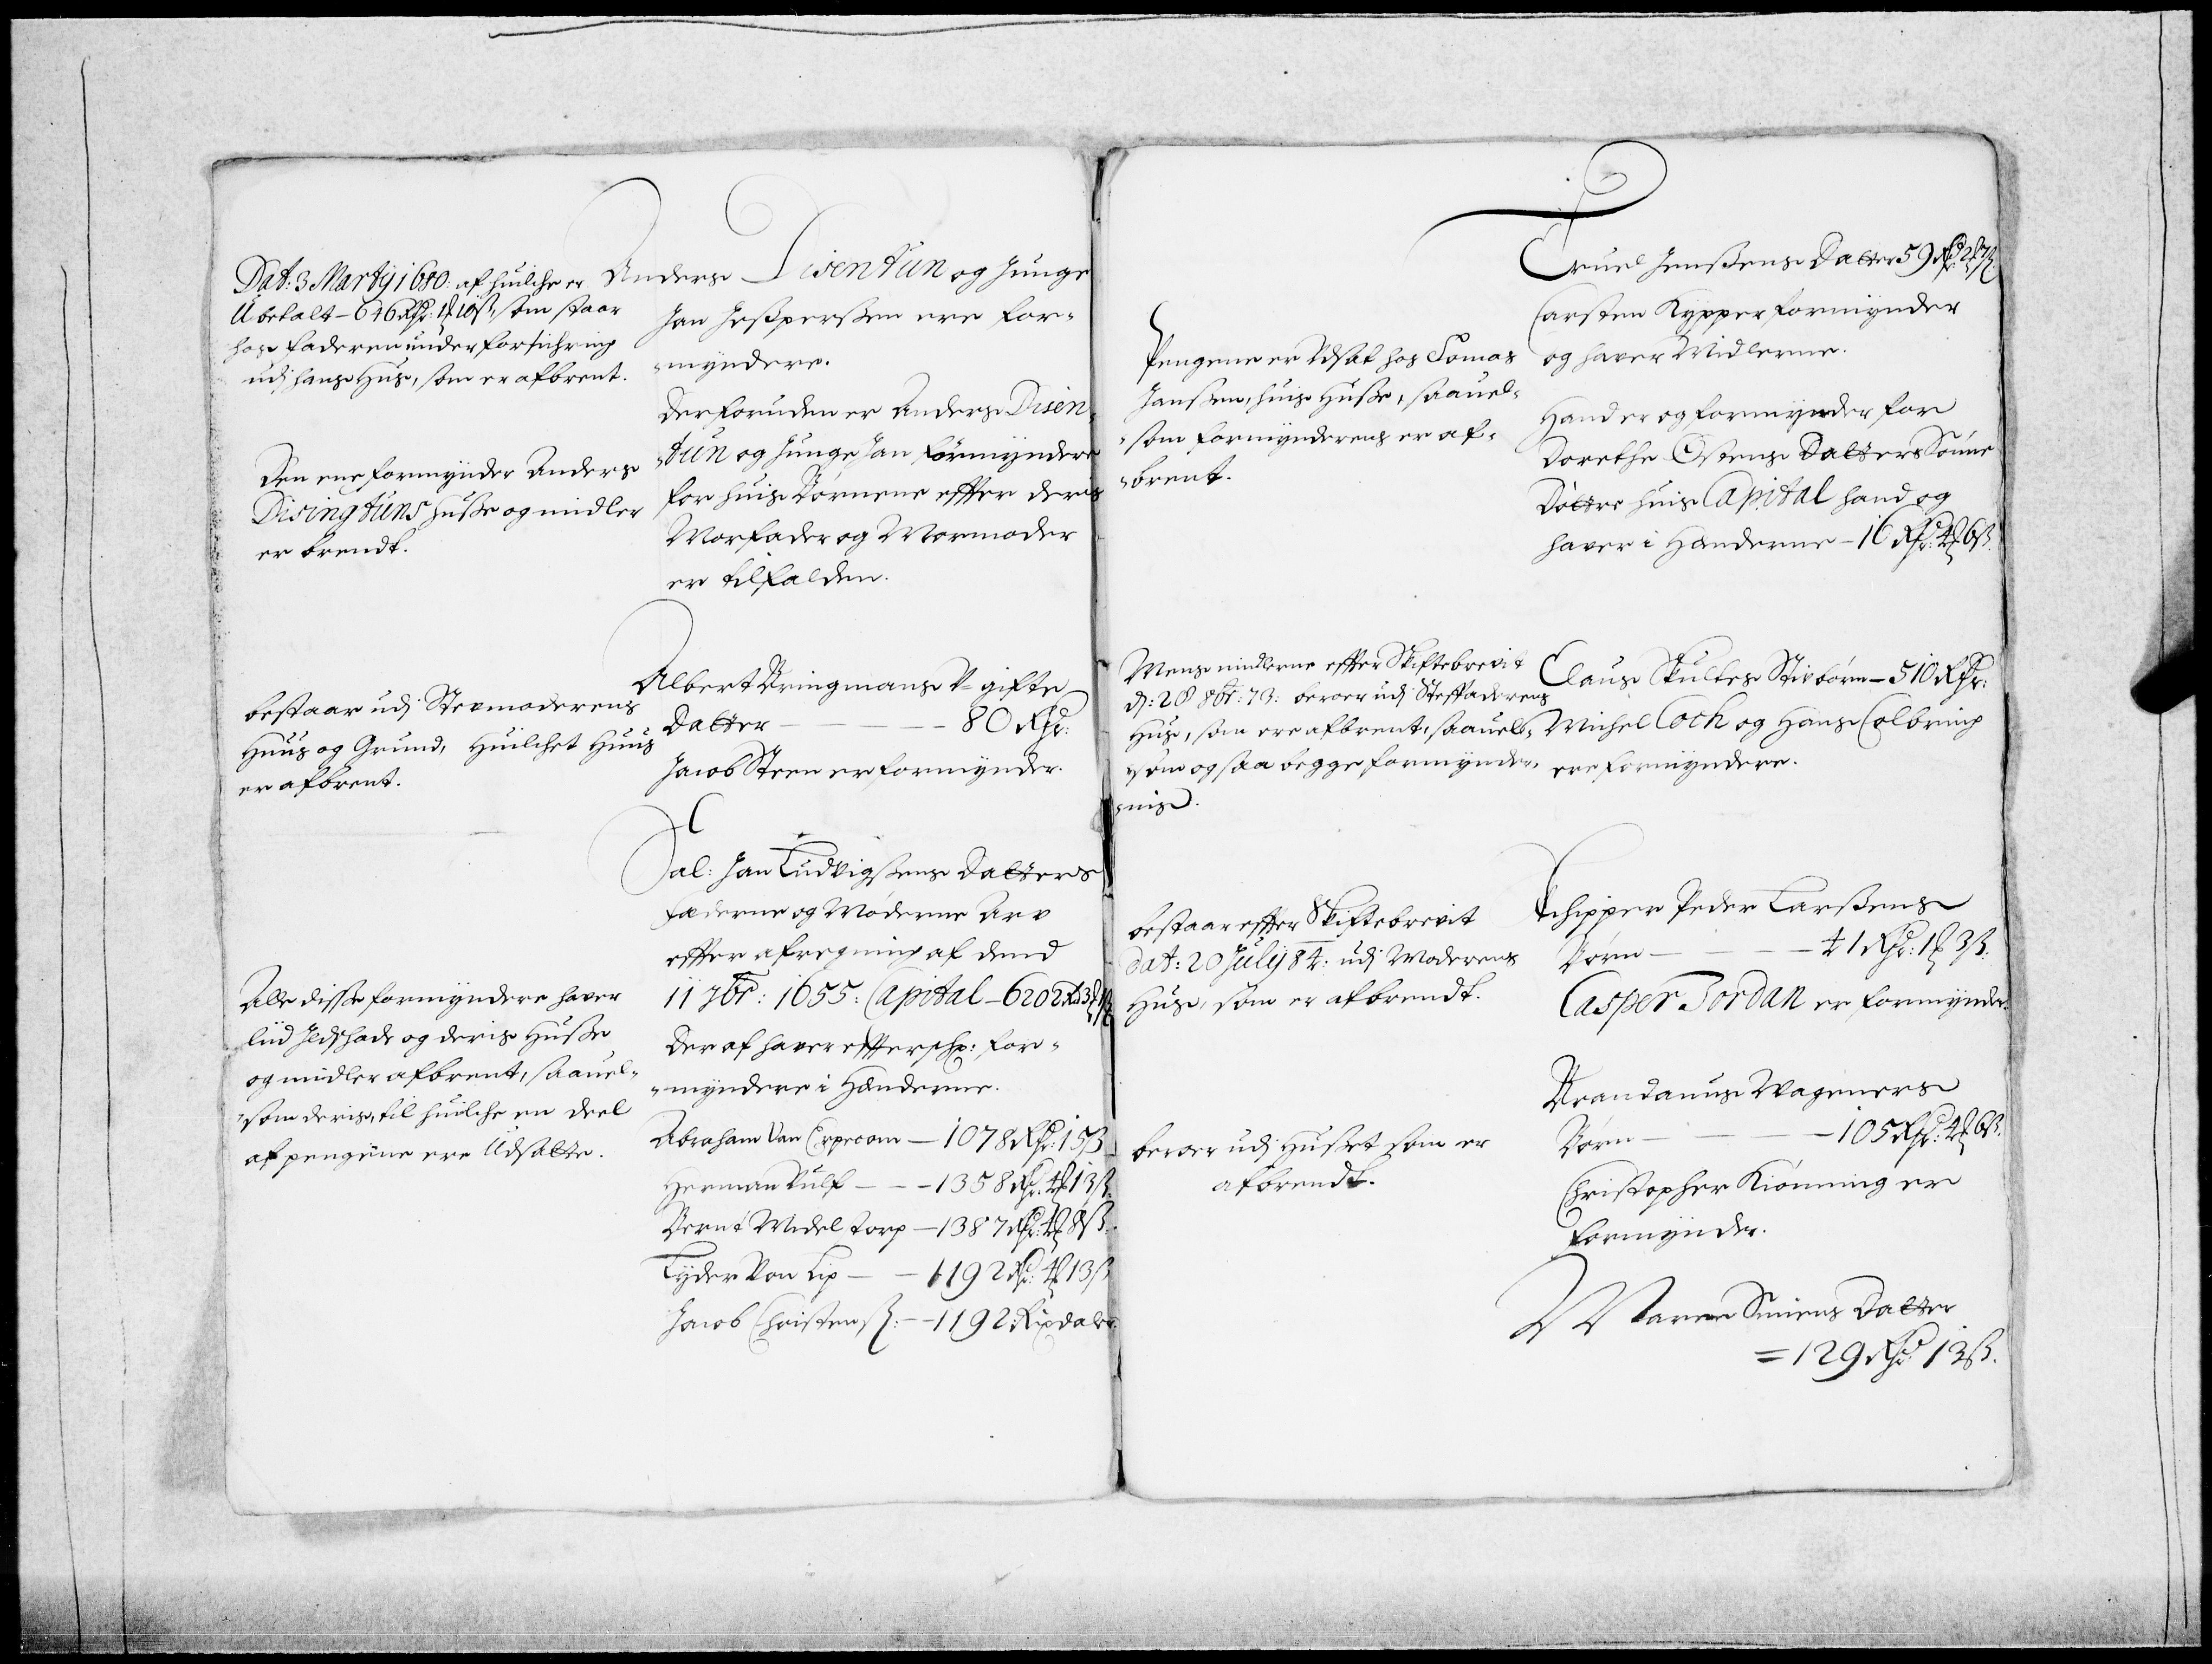 Dat: 3 Martij 1680: af huilche er
Ubetalt - 646 Rdr: 1 10 ß, som staar
hos faderen under forsichring
udj hans Huus, som er afbrent.
Den ene formynder Anders
Disingtuns Husse og midler
er brendt.
bestaar udj Stevmoderens
Huus og Grund, Huilchet Huus
er afbrent.
Alle disse formyndere haver
liid Ildschade og deris Husse
og midler afbrent, saavel-
som deris, til huilche en deel
af pengene ere Udsatte.
Anders Disentun og Junge
Jan Jespersen ere for-
myndere.
Der foruden er Anders Disen-
tun og Junge Jan formyndere
for huis Børnene effter deris
Morfader og Mormoder
er tilfalden.
Albert Bringmans V-gifte
Datter - 80 Rdr:
Jacob Steen er formynder.
Sal: Jan Ludvigsens Datters
Faderne og Møderne Arv
effter afregning af dend
11 7br: 1655: Capital - 6202 Rd 3
Der af haver effterschr: for-
myndere i Hænderne.
Abraham Van Erpecom - 1078 Rdr: 15 ß
Herman Vulf - 1358 Rdr: 4 13 ß.
Bernt Midel torp - 1387 Rdr: 4 8 ß.
Lyder Von Lip - 1192 Rdr: 4 13 ß
Jacob Christens: - 1192 Rixdaler.
Pengene er Udsat hos Tomas
Jansen, huis Husse, saavel-
som formynderens er af-
brent.
Mens midlerne effter Skiftebrevit
d: 28 8br: 73: beroer udj Steffaderens
Hus, som ere afbrent, saavel-
som ogsaa begge formynder-
nis.
bestaar effter Skiftebrevit
dat: 20 July 84: udj Moderens
Hus, som er afbrendt.
beroer udj Huset som er
afbrendt.
Truel Jensens Datter 59 Rdr 2 7 ß.
Carsten Kypper formynder
og haver Midlerne.
Hand er og formynder for
Dorethe Ostens Datters Sønne
Døttre huis Capital hand og
haver i Hænderne - 16 Rdr: 4 6 ß.
Claus Skultes Stivbørn - 510 Rdr:
Michel Coch og Hans Colbring
ere formyndere.
Schipper Peder Larsens
Børn - 41 Rdr: 1 3 ß.
Casper Jordan er formynder.
Brandanus Wageners
Børn - 105 Rdr: 4 6 ß.
Christopher Kiønning er
formynder.
Maren Simens Datter
= 129 Rdr 13 ß.